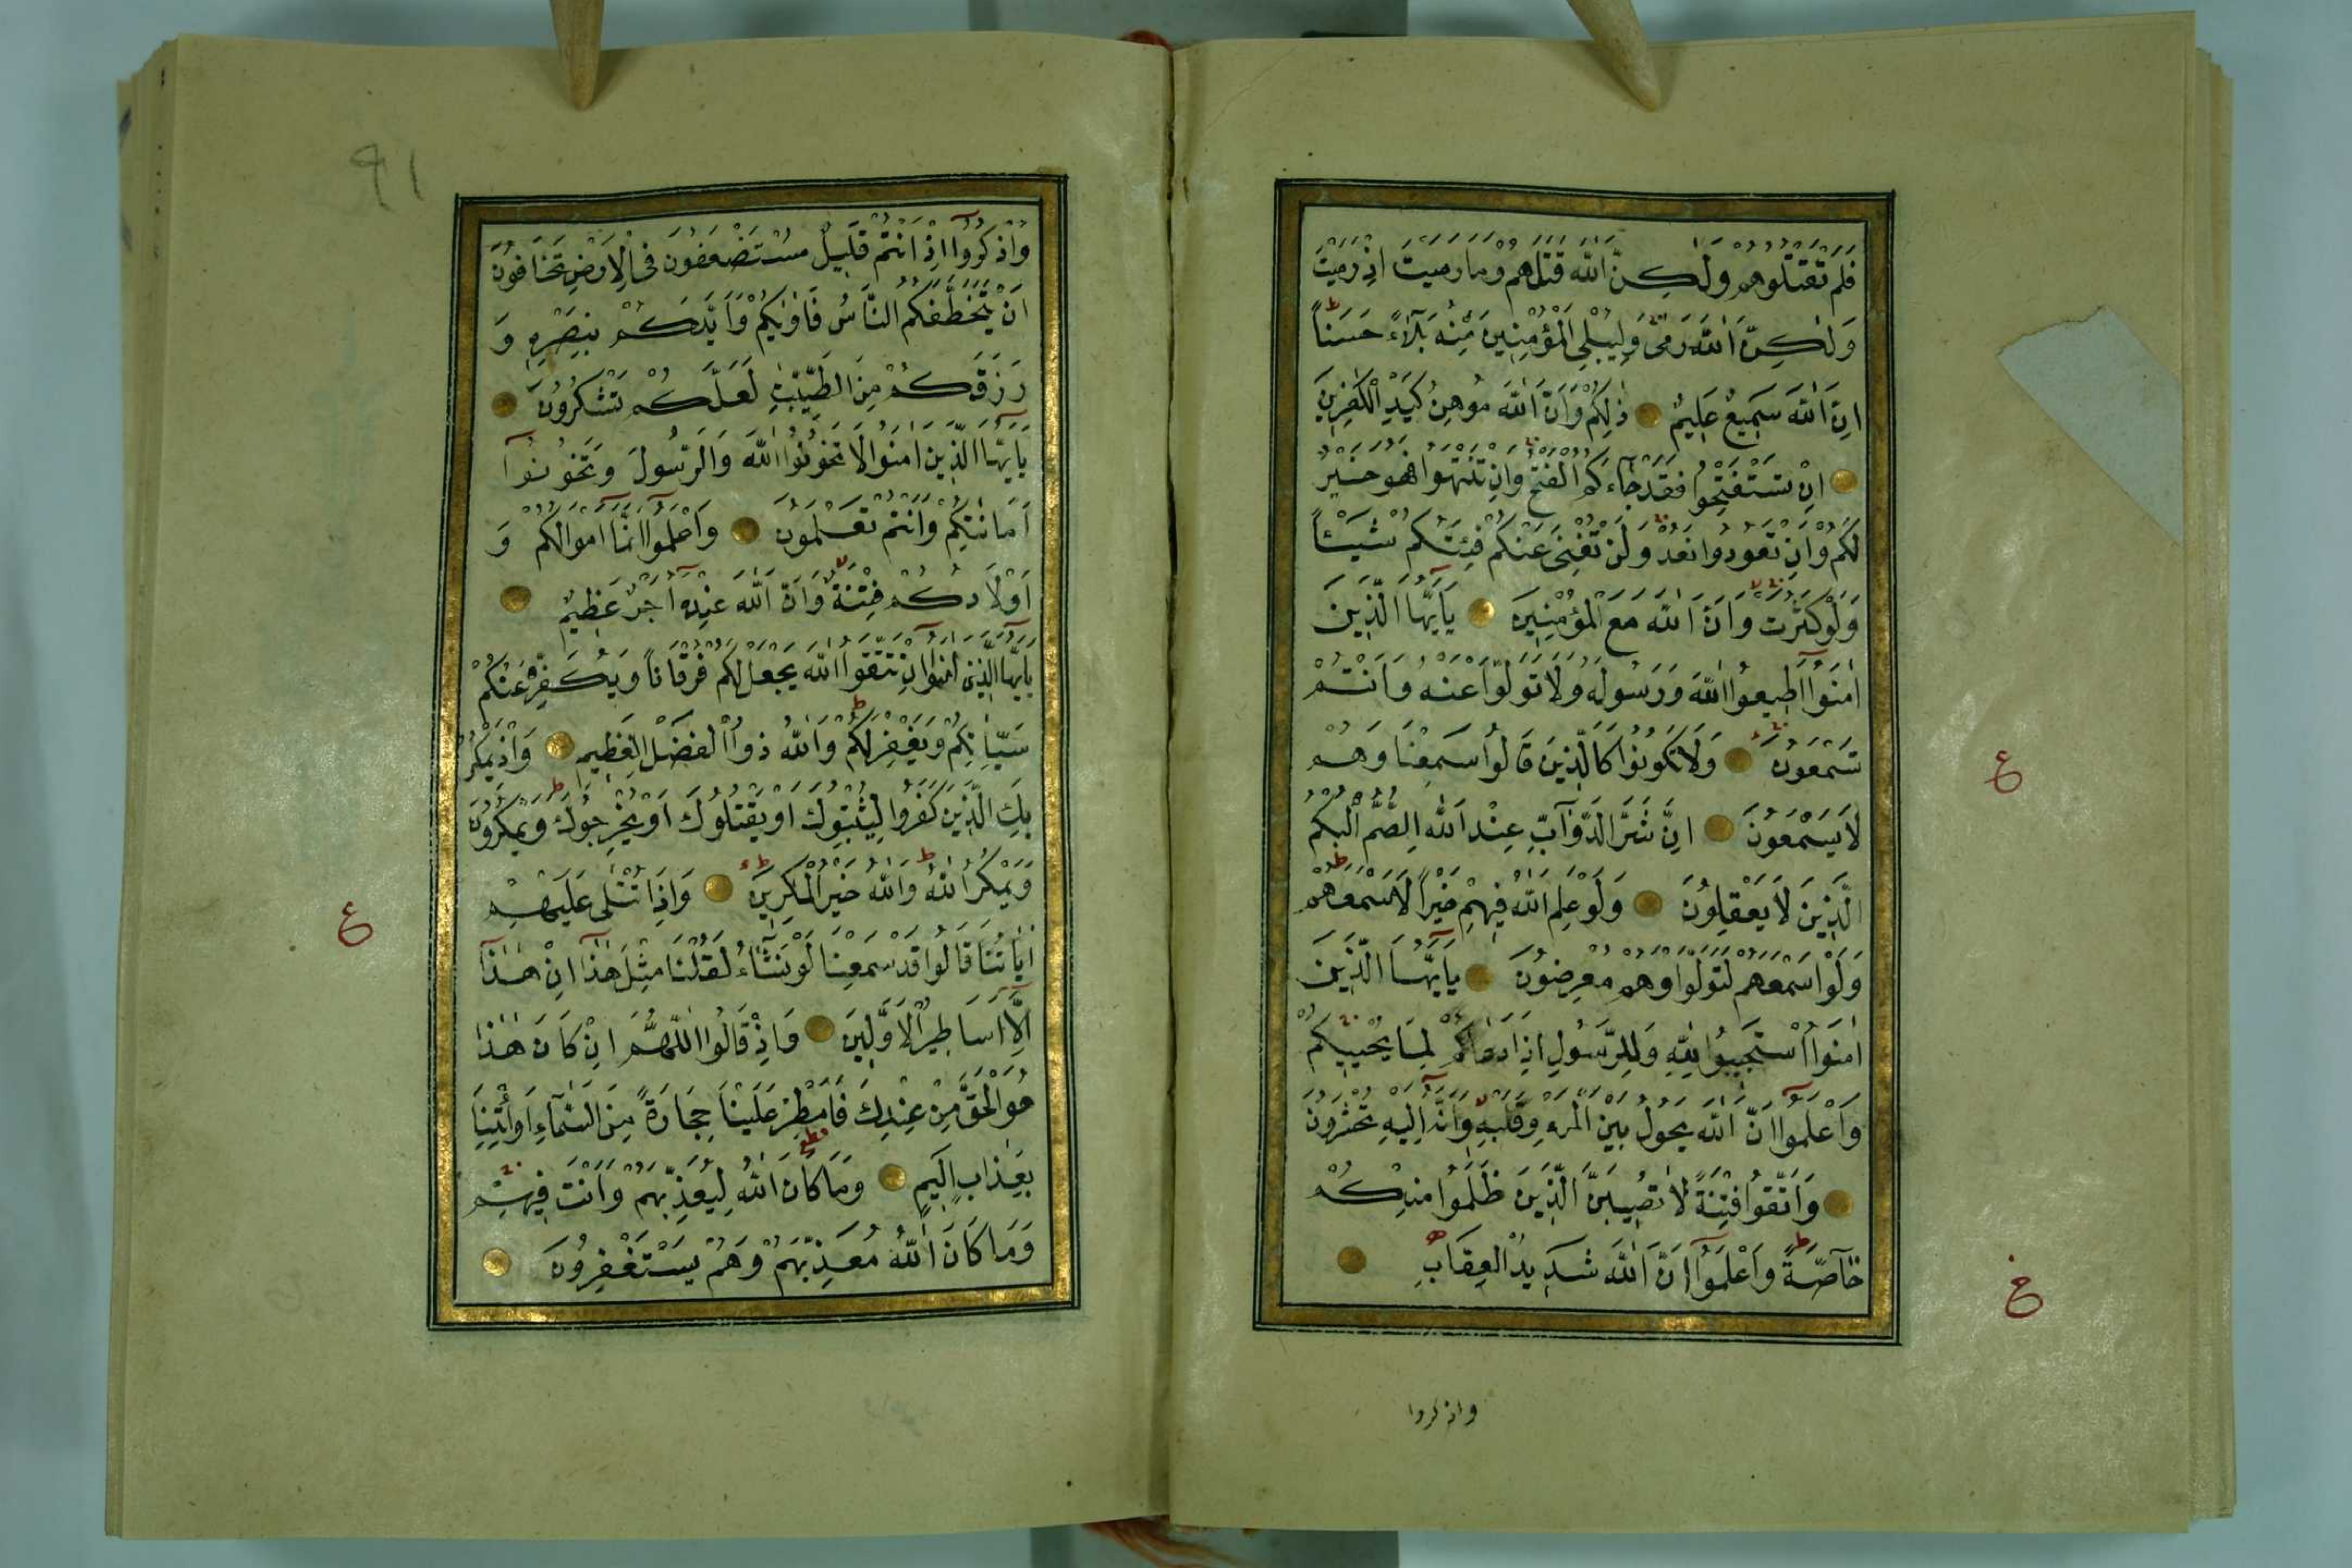 فَلَمْ تَقْتُلُوهُمْ وَلٰكِنَّ اللّٰهَ قَتَلَهُمْ وَمَا رَمَيْتَ اِذْ رَمَيْتَ
وَلٰكِنَّ اللّٰهَ رَمٰى وَلِيُبْلِىَ الْمُؤْمِنِينَ مِنْهُ بَلَآءً حَسَنًا
اِنَّ اللّٰهَ سَمِيعٌ عَلِيمٌ ذٰلِكُمْ وَاَنَّ اللّٰهَ مُوهِنُ كَيْدِ الْكٰفِرِينَ
اِنْ تَسْتَفْتِحُوا فَقَدْ جَآءَكُمُ الْفَتْحُ وَاِنْ تَنْتَهُوا فَهُوَ خَيْرٌ
لَكُمْ وَاِنْ تَعُودُوا نَعُدْ وَلَنْ تُغْنِىَ عَنْكُمْ فِئَتُكُمْ شَيْئًا
وَلَوْ كَثُرَتْ وَاَنَّ اللّٰهَ مَعَ الْمُؤْمِنِينَ يَآاَيُّهَا الَّذِينَ
اٰمَنُوٓا اَطِيعُوا اللّٰهَ وَرَسُولَهُ وَلَا تَوَلَّوْا عَنْهُ وَاَنْتُمْ
تَسْمَعُونَ وَلَا تَكُونُوا كَالَّذِينَ قَالُوا سَمِعْنَا وَهُمْ
لَا يَسْمَعُونَ اِنَّ شَرَّ الدَّوَآبِّ عِنْدَ اللّٰهِ الصُّمُّ الْبُكْمُ
الَّذِينَ لَا يَعْقِلُونَ وَلَوْ عَلِمَ اللّٰهُ فِيهِمْ خَيْرًا لَاَسْمَعَهُمْ
وَلَوْ اَسْمَعَهُمْ لَتَوَلَّوْا وَهُمْ مُعْرِضُونَ يَآاَيُّهَا الَّذِينَ
اٰمَنُوا اسْتَجِيبُوا لِلّٰهِ وَلِلرَّسُولِ اِذَا دَعَاكُمْ لِمَا يُحْيِيكُمْ
وَاعْلَمُوٓا اَنَّ اللّٰهَ يَحُولُ بَيْنَ الْمَرْءِ وَقَلْبِهِ وَاَنَّهُ اِلَيْهِ تُحْشَرُونَ
وَاتَّقُوا فِتْنَةً لَا تُصِيبَنَّ الَّذِينَ ظَلَمُوا مِنْكُمْ
خَآصَّةً وَاعْلَمُوٓا اَنَّ اللّٰهَ شَدِيدُ الْعِقَابِ
ع
ع
واذكروا
٩١
وَاذْكُرُوٓا اِذْ اَنْتُمْ قَلِيلٌ مُسْتَضْعَفُونَ فِى الْاَرْضِ تَخَافُونَ
اَنْ يَتَخَطَّفَكُمُ النَّاسُ فَاٰوٰيكُمْ وَاَيَّدَكُمْ بِنَصْرِهِ وَ
رَزَقَكُمْ مِنَ الطَّيِّبٰتِ لَعَلَّكُمْ تَشْكُرُونَ
يَآاَيُّهَا الَّذِينَ اٰمَنُوا لَا تَخُونُوا اللّٰهَ وَالرَّسُولَ وَتَخُونُوٓا
اَمَانَاتِكُمْ وَاَنْتُمْ تَعْلَمُونَ وَاعْلَمُوٓا اَنَّمَآ اَمْوَالُكُمْ وَ
اَوْلَادُكُمْ فِتْنَةٌ وَاَنَّ اللّٰهَ عِنْدَهُ اَجْرٌ عَظِيمٌ
يَآاَيُّهَا الَّذِينَ اٰمَنُوٓا اِنْ تَتَّقُوا اللّٰهَ يَجْعَلْ لَكُمْ فُرْقَانًا وَيُكَفِّرْ عَنْكُمْ
سَيِّاٰتِكُمْ وَيَغْفِرْ لَكُمْ وَاللّٰهُ ذُوا الْفَضْلِ الْعَظِيمِ وَاِذْ يَمْكُرُ
بِكَ الَّذِينَ كَفَرُوا لِيُثْبِتُوكَ اَوْ يَقْتُلُوكَ اَوْ يُخْرِجُوكَ وَيَمْكُرُونَ
وَيَمْكُرُ اللّٰهُ وَاللّٰهُ خَيْرُ الْمَاكِرِينَ وَاِذَا تُتْلٰى عَلَيْهِمْ
اٰيَاتُنَا قَالُوا قَدْ سَمِعْنَا لَوْ نَشَآءُ لَقُلْنَا مِثْلَ هٰذَآ اِنْ هٰذَآ
اِلَّآ اَسَاطِيرُ الْاَوَّلِينَ وَاِذْ قَالُوا اللّٰهُمَّ اِنْ كَانَ هٰذَا
هُوَ الْحَقَّ مِنْ عِنْدِكَ فَاَمْطِرْ عَلَيْنَا حِجَارَةً مِنَ السَّمَآءِ اَوِ ائْتِنَا
بِعَذَابٍ اَلِيمٍ وَمَا كَانَ اللّٰهُ لِيُعَذِّبَهُمْ وَاَنْتَ فِيهِمْ
وَمَا كَانَ اللّٰهُ مُعَذِّبَهُمْ وَهُمْ يَسْتَغْفِرُونَ
ع